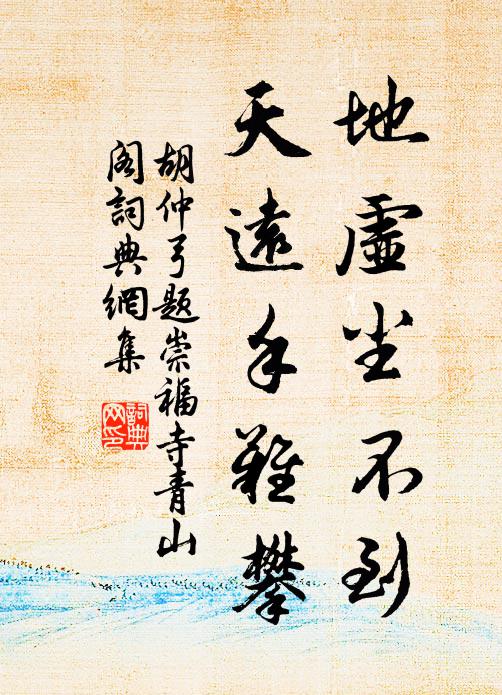 地虛尘不到
天遠手難攀
胡仲弓題崇福寺青山
閣詞典網集
詞典
网印